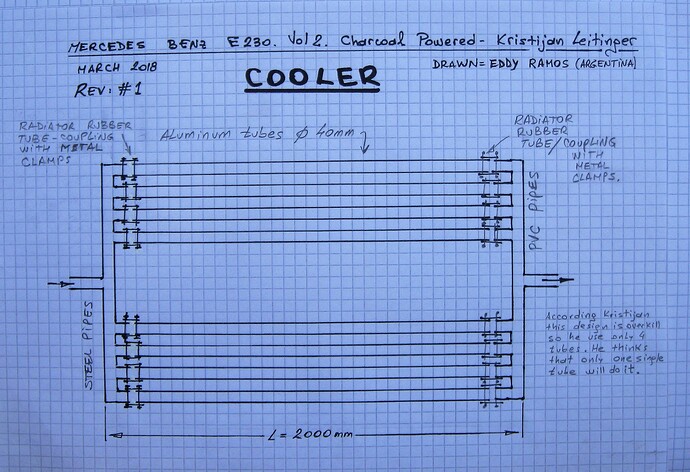 MERCEDES BENZ E230. Vol 2. Charcoal Powered - Kristijan Leitinger
MARCH 2018
DRAWN= EDDY RAMOS (ARGENTINA)
REV: #1
COOLER
RADIATOR RUBBER
TUBE-COUPLING
WITH METAL
CLAMPS
ALUMINUM tubes Φ 40mm
RADIATOR
RUBBER
TUBE/COUPLING
WITH
METAL
CLAMPS.
PVC PIPES
STEEL PIPES
According Kristijan
this design is overkill
so he use only 4
tubes. He thinks
that only one single
tube will do it.
L= 2000mm